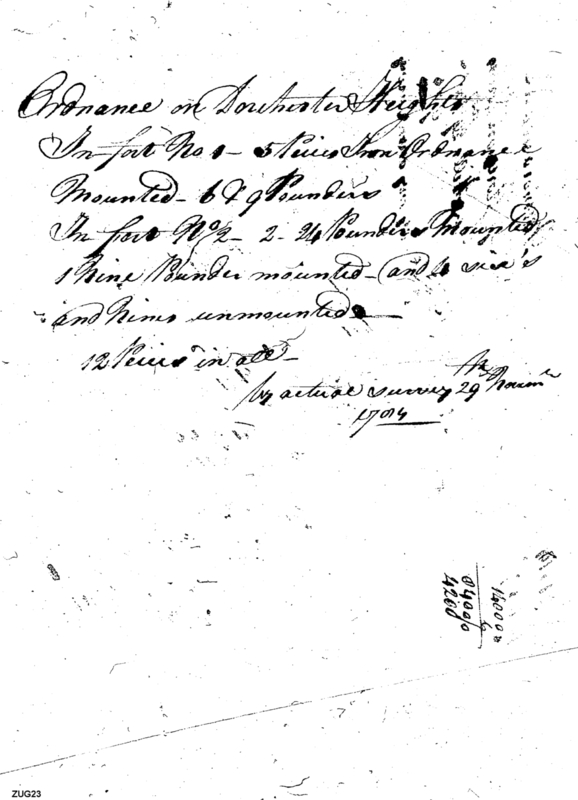 Ordnance on Dorchester Heights
In fort No 1 - 5 Peices Iron Ordnance
Mounted - 6 & 9 Pounders
In fort No 2 - 2 - 24 Pounders Mounted
1 Nine Pounder mounted - and 4 six's
and Nines unmounted
12 Peices in all -
by actual survey 29th Novemr
1784
14000
6
84000
4200
ZUG23